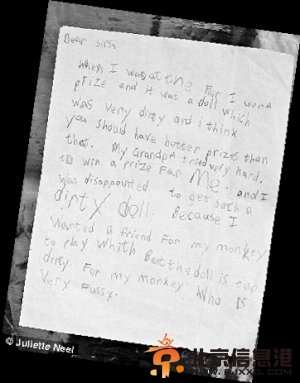 Dear Sirs
When I was at the Fair I won a
prize and it was a doll which
was very dirty and i think
you should have better prizes than
that. My Grandpa tried very hard.
to win a prize For Me. and I
was disappointed to get such a
dirty doll. Because I
Wanted a friend For my monkey
to play whith But the doll is too
dirty For my monkey who is
very Fussy.
© Juliette Neel
北京信息港